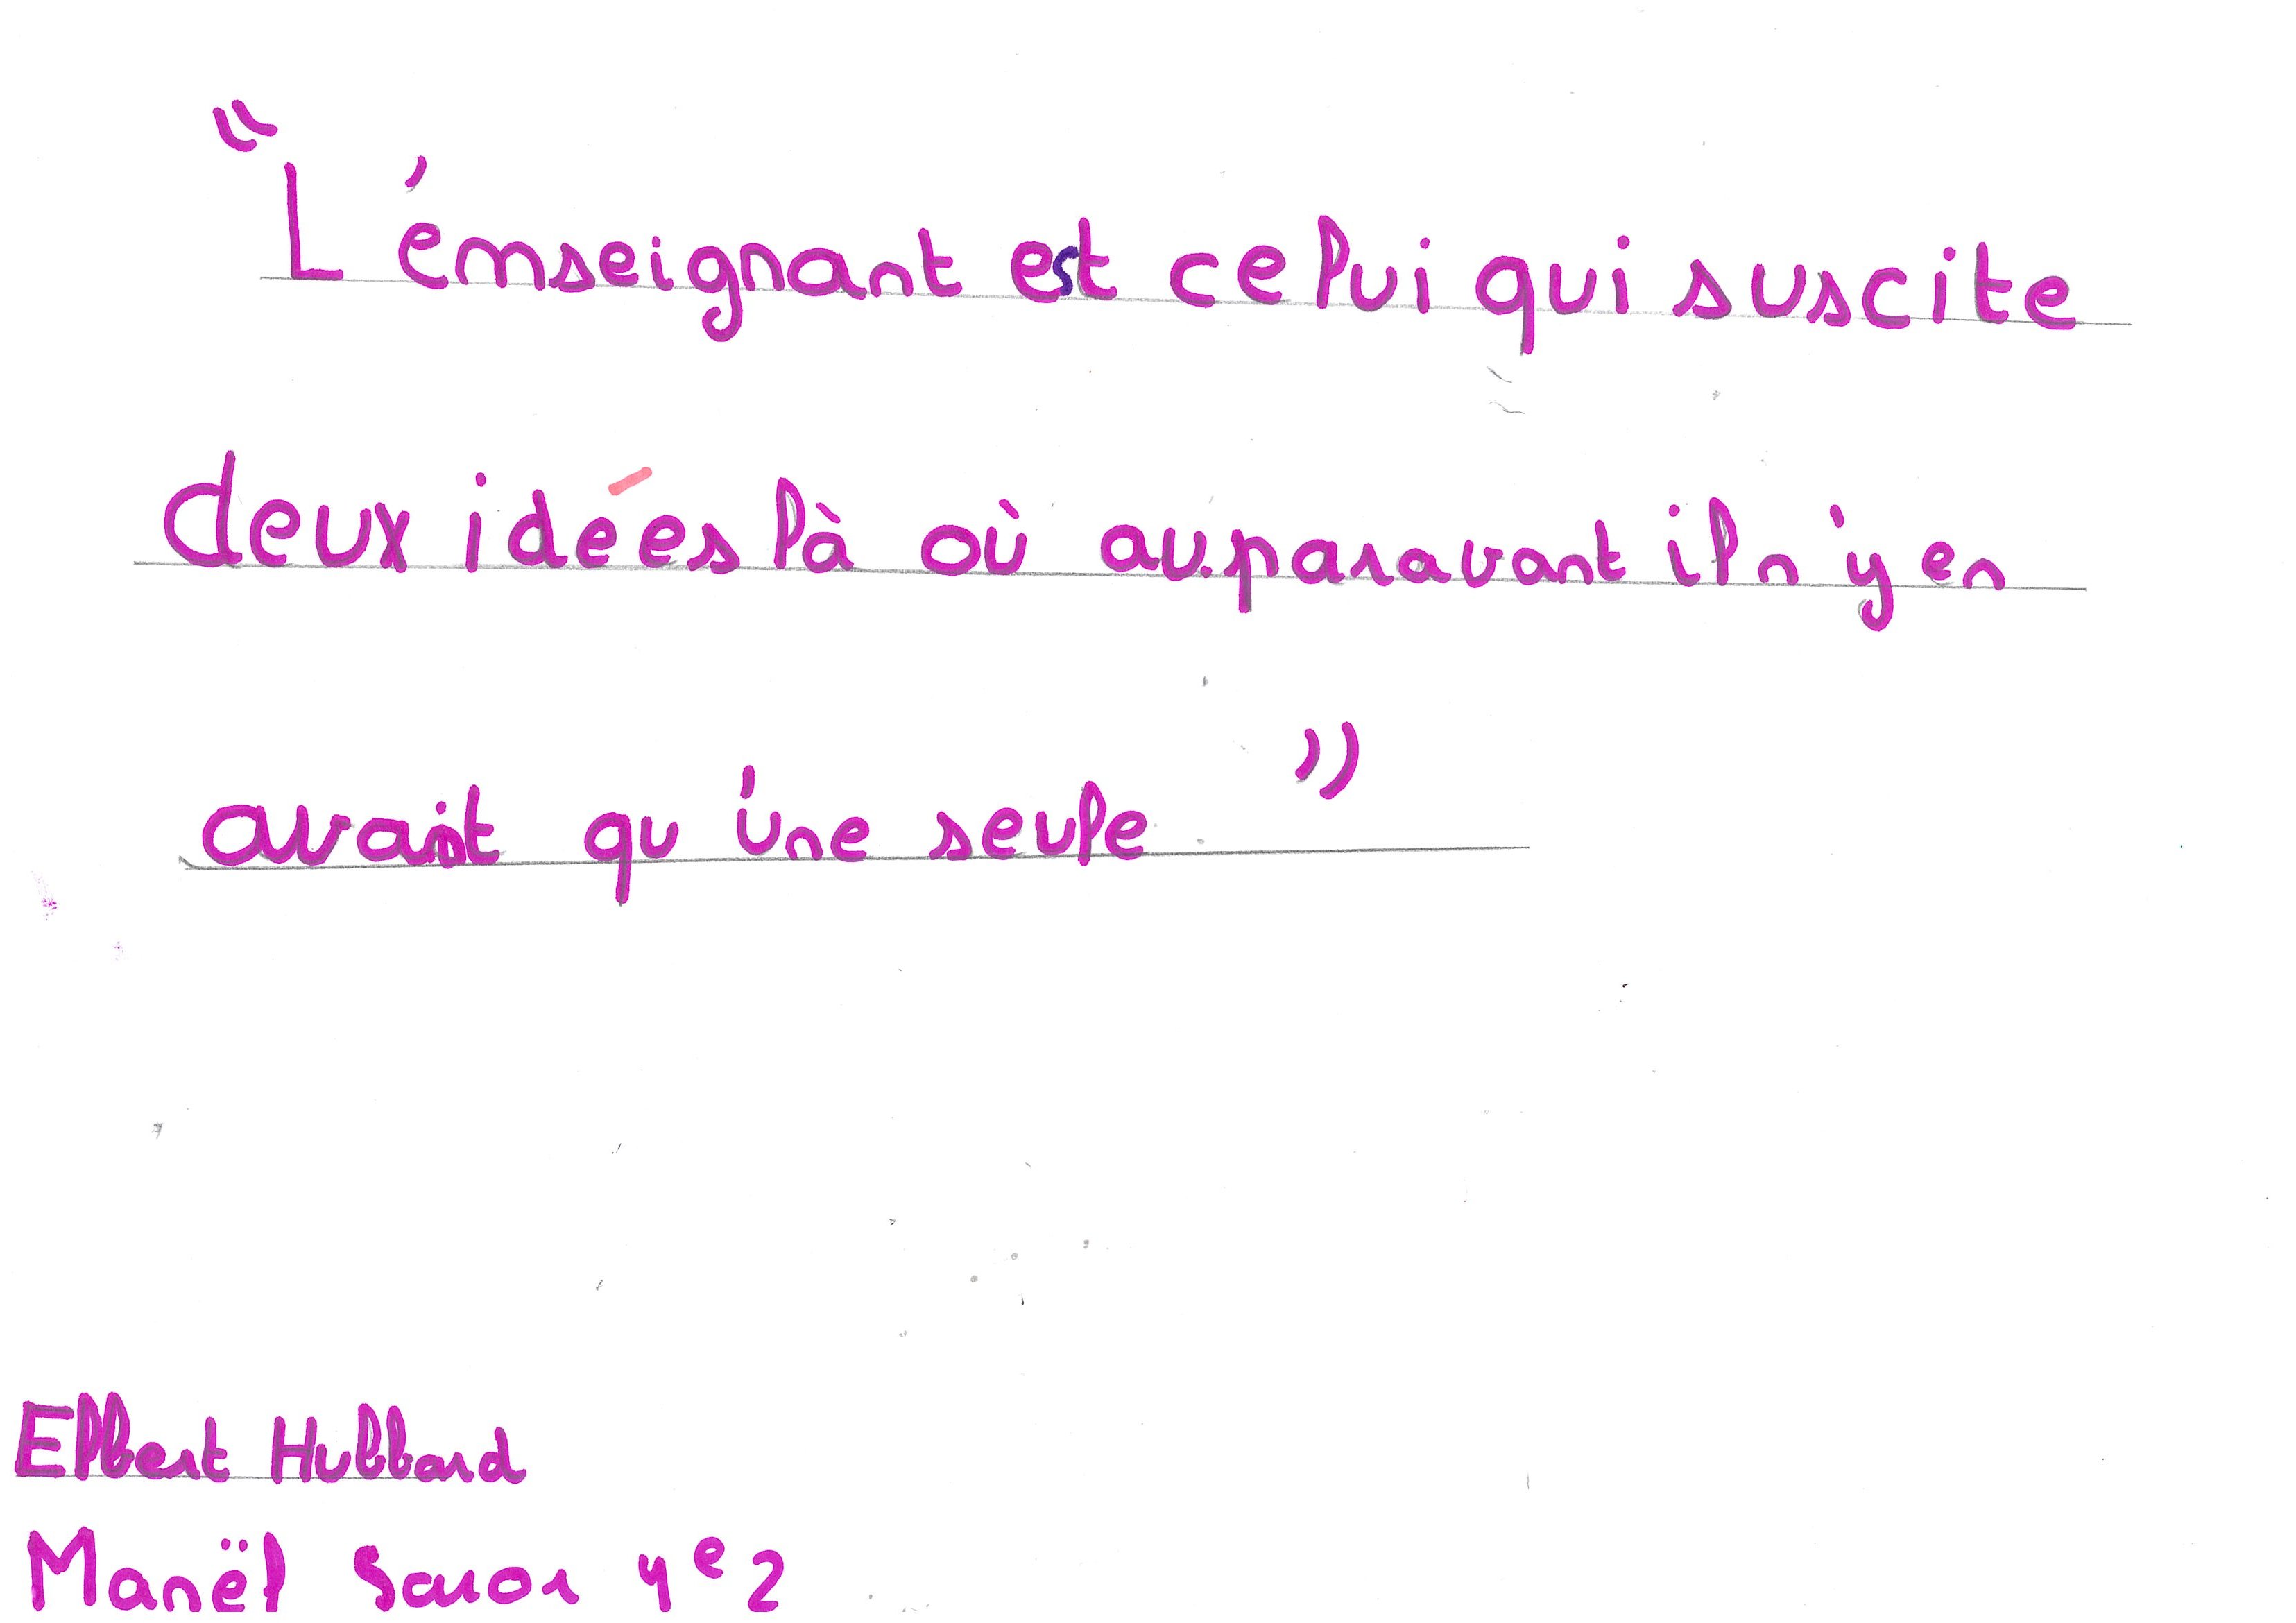 “L'emseignant est celui qui suscite
deux idées là où auparavant il n'y en
avait qu'une seule”
Elbert Hubbard
Manël 4e2